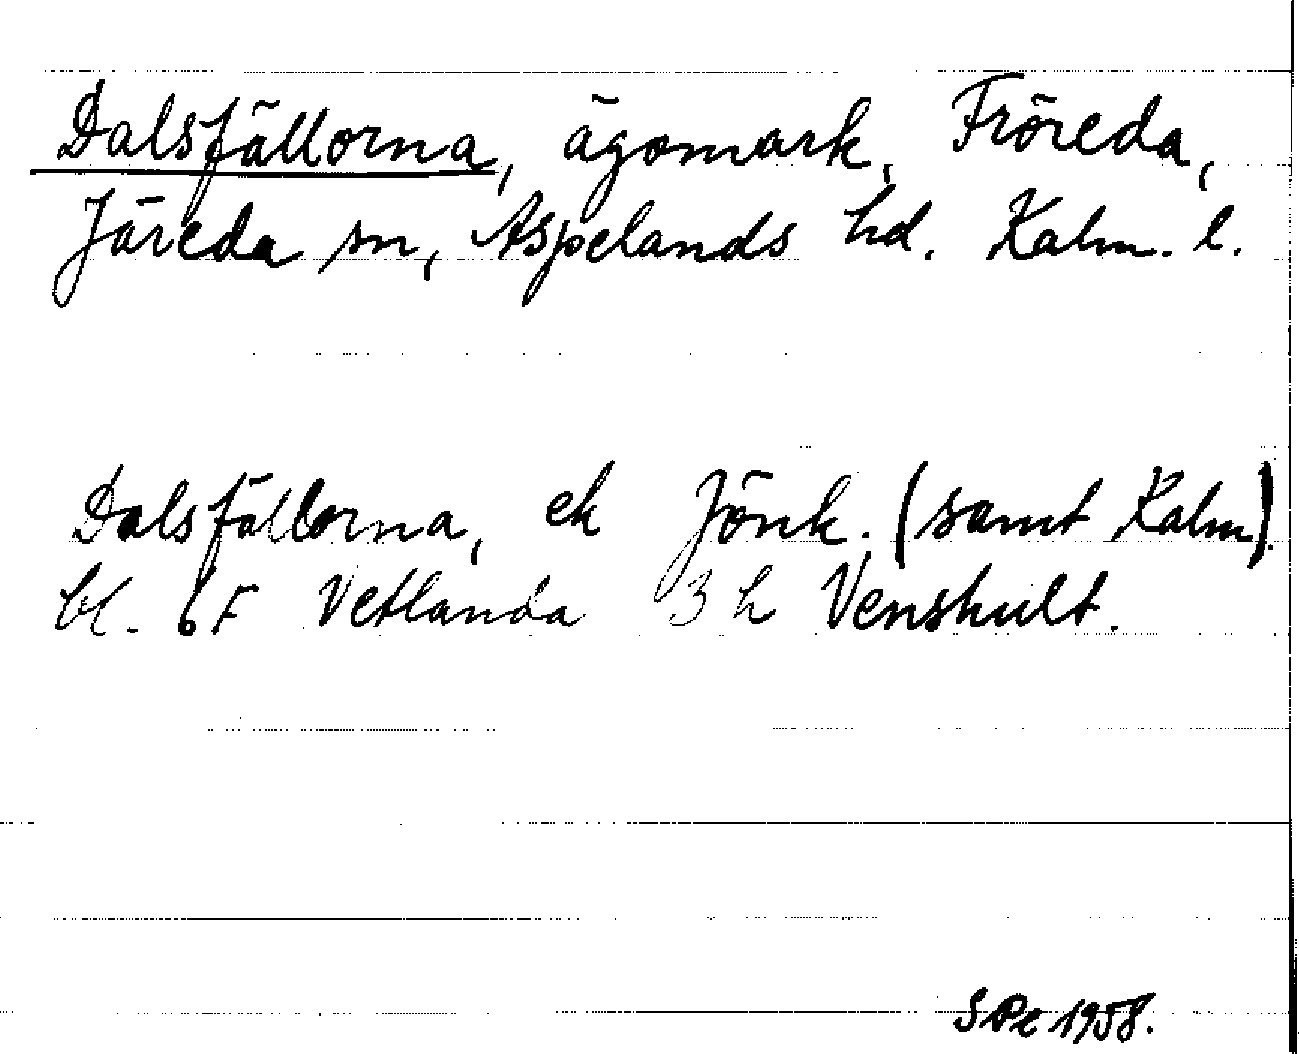 Dalsfällorna, ägomark, Fröreda,
Järeda sn, Aspelands hd. Kalm. l.
Dalsfällorna, ek Jönk. (samt Kalm).
bl. 6F Vetlanda 3 h Venshult.
SPe 1958.